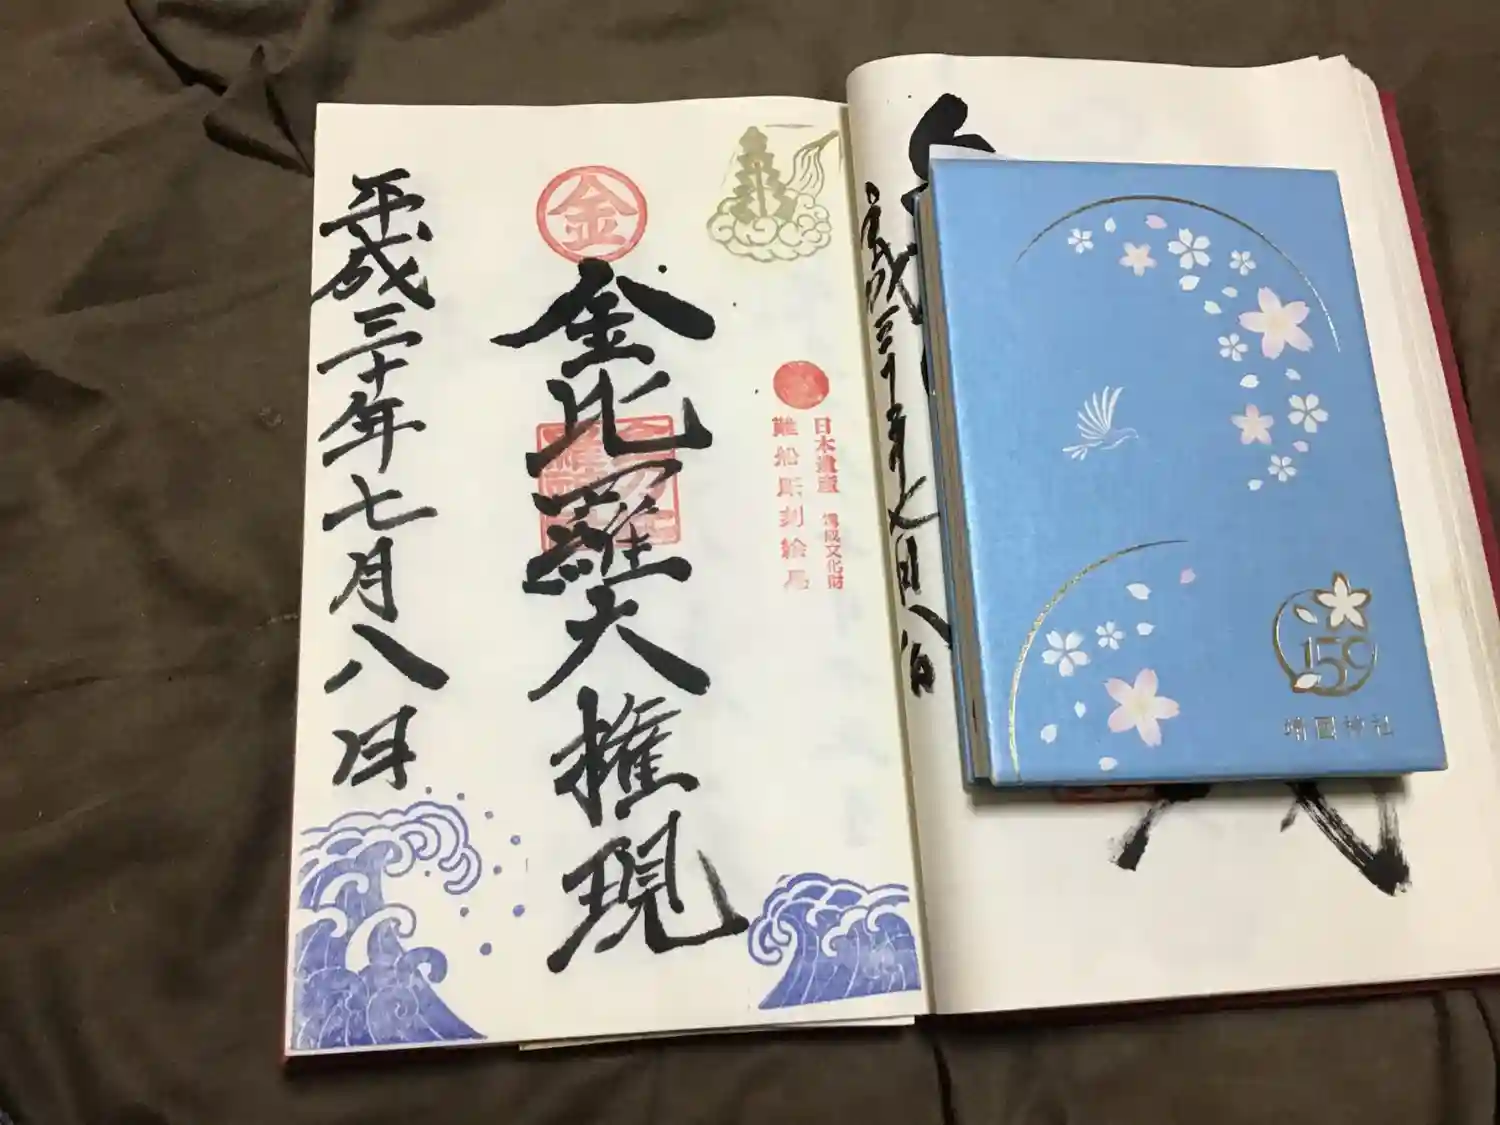 金
金比羅大権現
平成三十年七月八日
日本遺産 構成文化財
難船彫刻絵馬
平成三十年七月八日
150
靖國神社